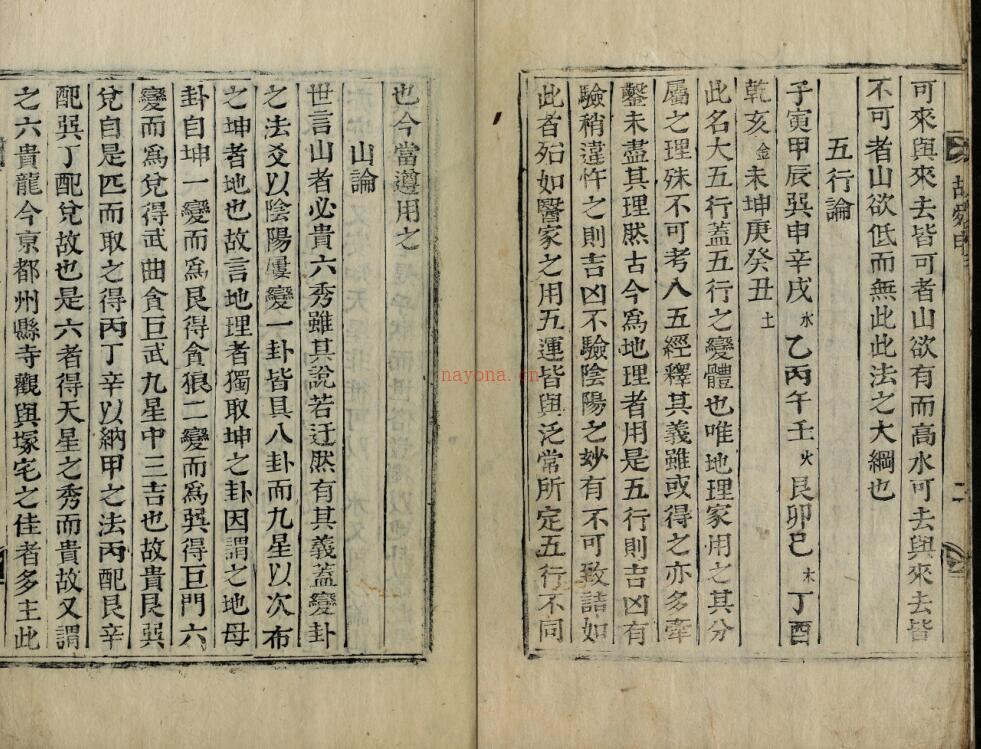 可來與來去皆可者山欲有而高水可去與來去皆
不可者山欲低而無此此法之大綱也
五行論
子寅甲辰巽申辛戌水乙丙午壬火艮卯巳木丁酉
乾亥金未坤庚癸丑土
此名大五行蓋五行之變體也唯地理家用之其分
屬之理殊不可考八五經釋其義雖或得之亦多牽
鑿未盡其理然古今爲地理者用是五行則吉凶有
驗稍違忤之則吉凶不驗陰陽之妙有不可致詰如
此者殆如醫家之用五運皆與泛常所定五行不同
也今當遵用之
山論
世言山者必貴六秀雖其說若迂然有其義蓋變卦
之法爻以陰陽變一卦皆具八卦而九星以次布
之坤者地也故言地理者獨取坤之卦因謂之地母
卦自坤一變而爲艮得貪狼二變而爲巽得巨門六
變而爲兌得武曲貪巨武九星中三吉也故貴艮巽
兌自是匹而取之得丙丁辛以納甲之法丙配艮辛
配巽丁配兌故也是六者得天星之秀而貴故又謂
之六貴龍今京都州縣寺觀與塚宅之佳者多主此
nayona.cn